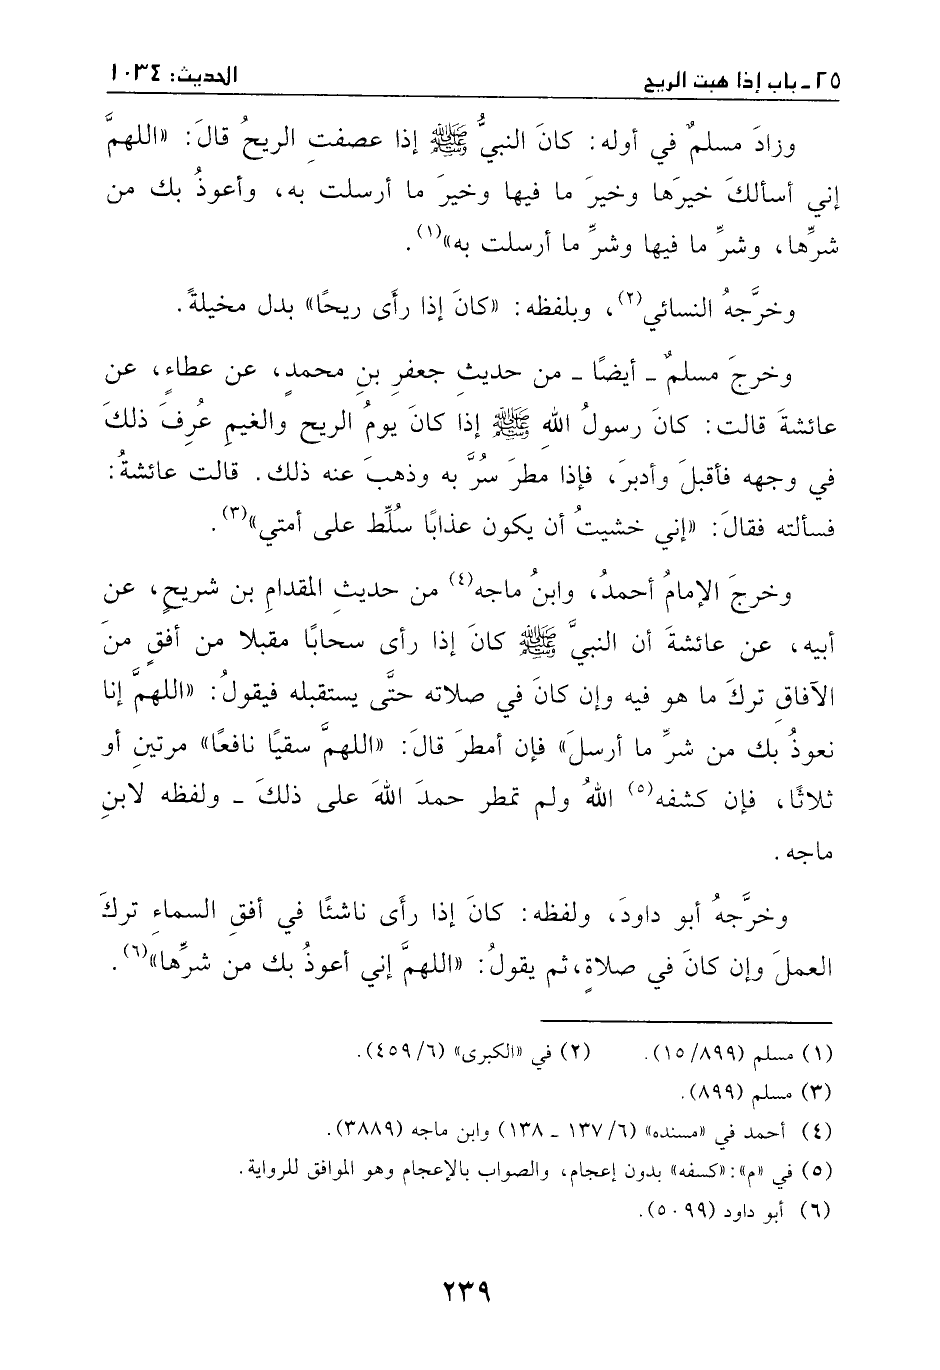 ٢٥ - باب إذا هبت الريح الحديث: ١٠٣٤
وزادَ مسلمٌ في أوله: كانَ النبيُّ ﷺ إذا عصفتِ الريحُ قالَ: «اللهمَّ
إني أسألكَ خيرَها وخيرَ ما فيها وخيرَ ما أرسلت به، وأعوذُ بك من
شرِّها، وشرِّ ما فيها وشرِّ ما أرسلت به»(١).
وخرَّجهُ النسائي(٢)، وبلفظه: «كانَ إذا رأى ريحًا» بدل مخيلةً.
وخرجَ مسلمٌ - أيضًا - من حديثِ جعفرِ بنِ محمدٍ، عن عطاءٍ، عن
عائشةَ قالت: كانَ رسولُ اللهِ ﷺ إذا كانَ يومُ الريحِ والغيمِ عُرِفَ ذلكَ
في وجهه فأقبلَ وأدبرَ، فإذا مطرَ سُرَّ به وذهبَ عنه ذلك. قالت عائشةُ:
فسألته فقالَ: «إني خشيتُ أن يكون عذابًا سُلِّط على أمتي»(٣).
وخرجَ الإمامُ أحمدُ، وابنُ ماجه(٤) من حديثِ المقدامِ بن شريحٍ، عن
أبيه، عن عائشةَ أن النبيَّ ﷺ كانَ إذا رأى سحابًا مقبلا من أفقٍ منَ
الآفاقِ تركَ ما هو فيه وإن كانَ في صلاته حتَّى يستقبله فيقولُ: «اللهمَّ إنا
نعوذُ بك من شرِّ ما أرسلَ» فإن أمطرَ قالَ: «اللهمَّ سقيًا نافعًا» مرتينِ أو
ثلاثًا، فإن كشفه(٥) اللهُ ولم تمطر حمدَ اللهَ على ذلكَ - ولفظه لابنِ
ماجه.
وخرَّجهُ أبو داودَ، ولفظه: كانَ إذا رأَى ناشئًا في أفقِ السماءِ تركَ
العملَ وإن كانَ في صلاةٍ، ثم يقولُ: «اللهمَّ إني أعوذُ بك من شرِّها»(٦).
(١) مسلم (١٥/٨٩٩). (٢) في «الكبرى» (٤٥٩/٦).
(٣) مسلم (٨٩٩).
(٤) أحمد في «مسنده» (١٣٧/٦ - ١٣٨) وابن ماجه (٣٨٨٩).
(٥) في «م»: «كسفه» بدون إعجام، والصواب بالإعجام وهو الموافق للرواية.
(٦) أبو داود (٥٠٩٩).
٢٣٩